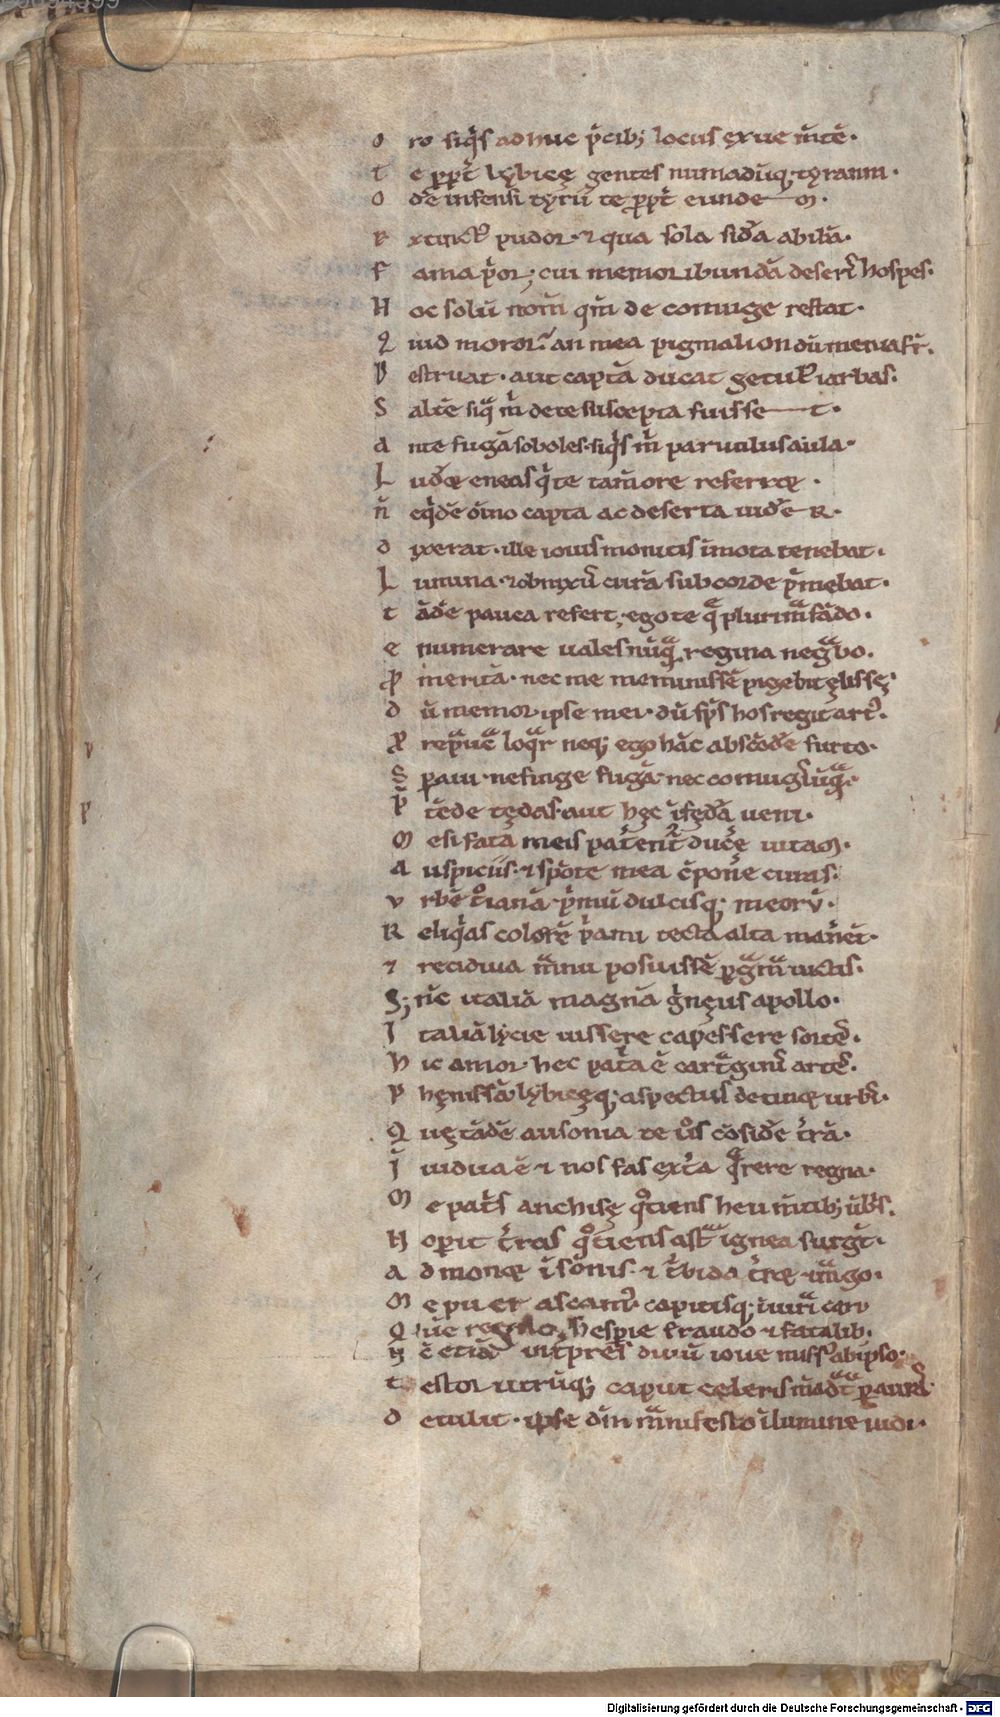 O ro siq̓s adhuc p̓cib; locus exue m̄tē·
T e ꝓpt̄ lẏbicę gentes numadūq; tẏranni·
O d̄e infensi tẏrii te ꝓpt̄ eunde m·
E xtinctꝰ pudor· ⁊ qua sola sid̄a adibā·
F ama p̓or; cui me moribundā deser̄ hospes·
H oc solū nom̄ qm̄ de coniuge restat·
Q uid moror· an mea pigmalion dū menia fr̄·
D estruat· aut captā ducat getulꝰ iarbas·
S altē siq̄ m̓ de te suscepta fuisse t·
A nte fugā soboles· siq̓s m̓ paruulus aula·
L uder& eneas q̓ te tam̄ ore referr&·
N̄ eq̓dē om̄ino capta ac deserta uid̄e R·
D ixerat· ille iouis monitis īmota tenebat·
L umina· ⁊ obnixꝰ curā sub corde p̓mebat·
T ād̄e pauca refert; ego te q̄ plurim̄a fādo·
E numerare uales nūq̄ regina neg̓bo·
P̄ meritā· nec me meminissē pigebit ęlissę·
D ū memor ipse mei· dū sp̄s hos regit artꝰ·
P̱ re pauc̄ loq̓r neq; ego hāc abscōd̄e furto·
S peraui· ne finge fugā· nec coniug̓ ūq̄·
P̄ tēde tędas· aut hęc ī fęd̓a ueni·
M e si fata meis pat̓ent̄ duc̓e uitam·
A uspiciis· ⁊ spōte mea c̄pon̓e curas·
V rbē t̊ianā p̓mū dulcisq; meorū·
R eliq̓as colorē p̓ami tecta alta man̓et·
⁊ recidiua m̄anu posuissē pg̓ma uictis·
S; n̄c italiā magnā g̓nęus apollo·
I taliā lẏcie iussere capessere sortes·
H ic amor· hec pat̓a ē cartaginis artes·
P hęnissā lẏbicęq; aspectus detin& urbis·
Q ue tād̄e ausonia te uos cōsid̓e t̓ra·
Ī uidia ē ⁊ nos fas ext̓a q̄rere regna·
M e pat̓s anchisę q̊tiens heu m̄tib; ūb̓s·
H op̱it t̓ras q̊tiens ast̓a ignea surg̓t·
A dmon& ī sōnis· ⁊ t̓bida t̓r& im̄ago·
M e puer ascaniꝰ capitisq; iniur̄ia cari
Q ūe regno hespie fraudo ⁊ fatalib·
N̄ c̄ etiā īt̓pres diuū ioue missꝰ ab ipso·
T estor utrūq; caput celeris m̄adat̄a p̱ auras·
D etulit· ipse dm̄ m̄anifesto ī lumine uidi·
v
p
Digitalisierung gefördert durch die Deutsche Forschungsgemeinschaft - DFG